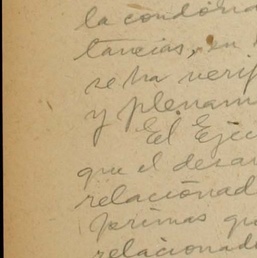 la condóna
tancias, en
se ha verif
y plenam
El Ejec
que el desar
relacionad
primas qu
relacionado